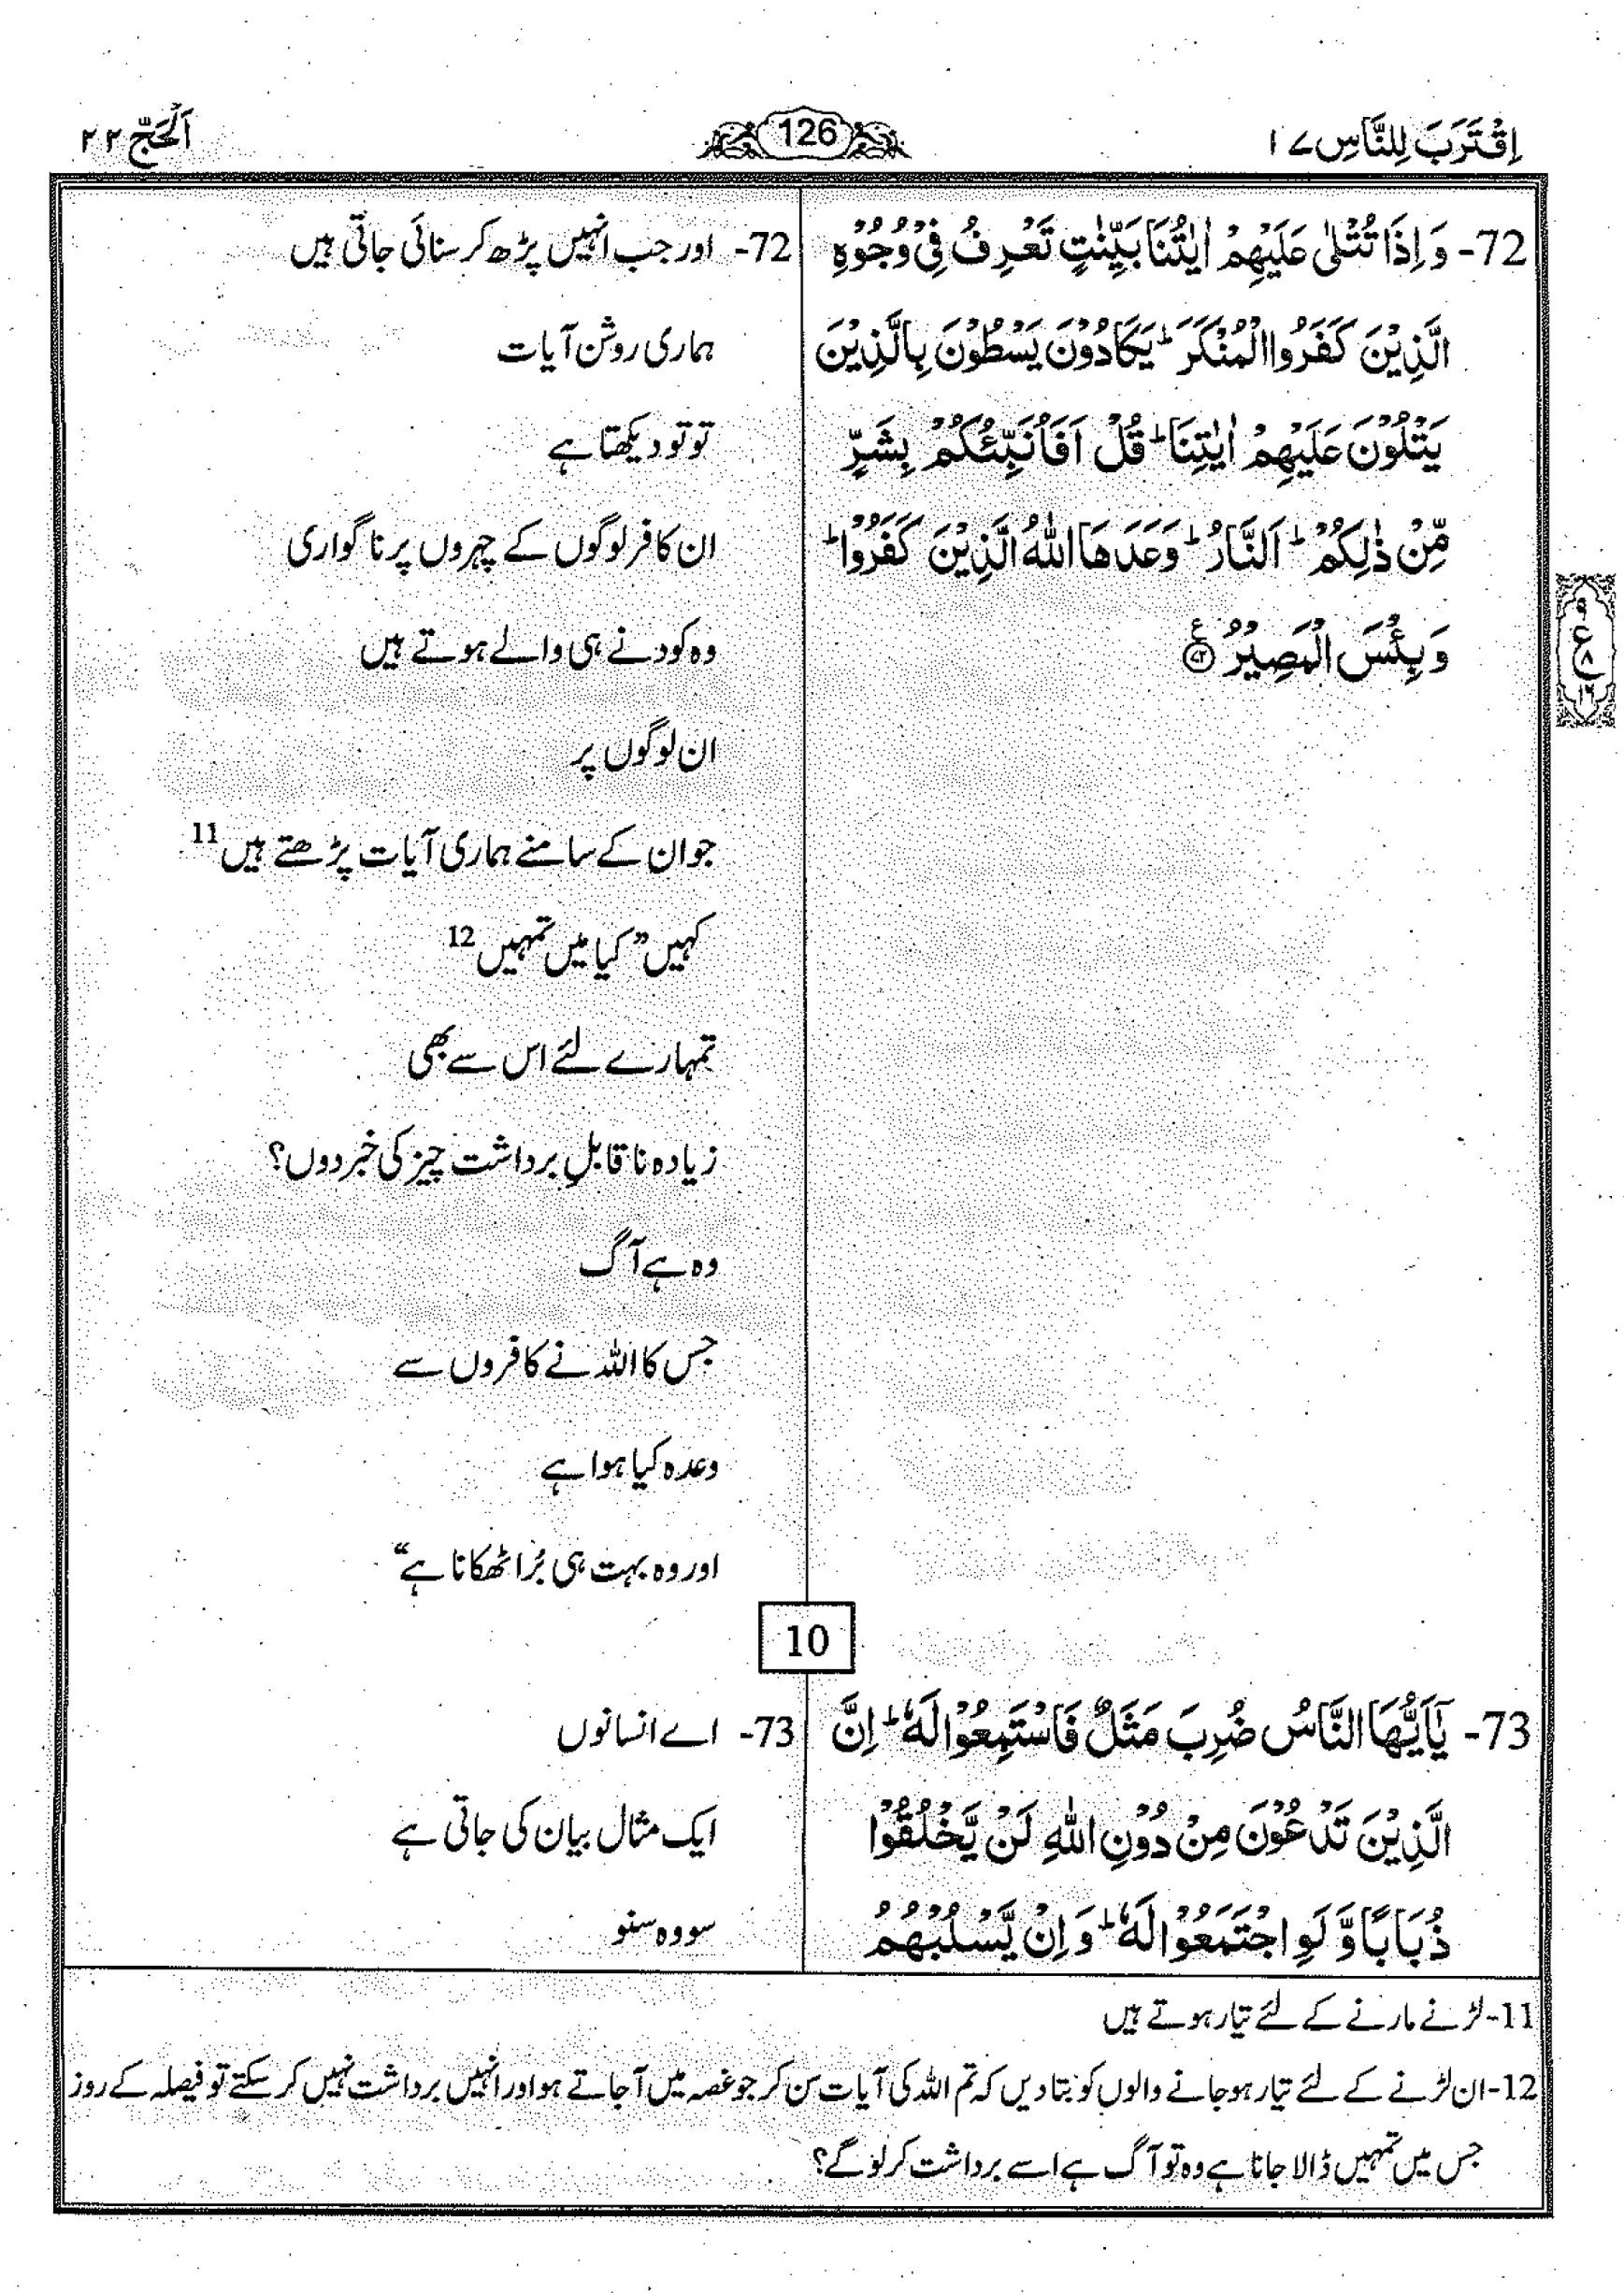 اِقْتَرَبَ لِلنَّاسِ ۱۷
126
اَلْحَجّ ۲۲
72- وَ اِذَا تُتْلٰى عَلَيْهِمْ اٰيٰتُنَا بَيِّنٰتٍ تَعْرِفُ فِيْ وُجُوْهِ
الَّذِيْنَ كَفَرُوا الْمُنْكَرَ ؕ يَكَادُوْنَ يَسْطُوْنَ بِالَّذِيْنَ
يَتْلُوْنَ عَلَيْهِمْ اٰيٰتِنَا ؕ قُلْ اَفَاُنَبِّئُكُمْ بِشَرٍّ
مِّنْ ذٰلِكُمْ ؕ اَلنَّارُ ؕ وَعَدَهَا اللّٰهُ الَّذِيْنَ كَفَرُوْا ؕ
وَ بِئْسَ الْمَصِيْرُ ۟ ع ۷۲
72- اور جب انہیں پڑھ کر سنائی جاتی ہیں
ہماری روشن آیات
تو تو دیکھتا ہے
ان کافر لوگوں کے چہروں پر ناگواری
وہ کودنے ہی والے ہوتے ہیں
ان لوگوں پر
جو ان کے سامنے ہماری آیات پڑھتے ہیں 11
کہیں ”کیا میں تمہیں 12
تمہارے لئے اس سے بھی
زیادہ ناقابلِ برداشت چیز کی خبر دوں؟
وہ ہے آگ
جس کا اللہ نے کافروں سے
وعدہ کیا ہوا ہے
اور وہ بہت ہی بُرا ٹھکانا ہے“
۹
ع
۸
10
73- يٰۤاَيُّهَا النَّاسُ ضُرِبَ مَثَلٌ فَاسْتَمِعُوْا لَهٗ ؕ اِنَّ
الَّذِيْنَ تَدْعُوْنَ مِنْ دُوْنِ اللّٰهِ لَنْ يَّخْلُقُوْا
ذُبَابًا وَّ لَوِ اجْتَمَعُوْا لَهٗ ؕ وَ اِنْ يَّسْلُبْهُمُ
73- اے انسانوں
ایک مثال بیان کی جاتی ہے
سو وہ سنو
11- لڑنے مارنے کے لئے تیار ہوتے ہیں
12- ان لڑنے کے لئے تیار ہو جانے والوں کو بتا دیں کہ تم اللہ کی آیات سن کر جو غصہ میں آ جاتے ہو اور انہیں برداشت نہیں کر سکتے تو فیصلہ کے روز
جس میں تمہیں ڈالا جانا ہے وہ تو آگ ہے اسے برداشت کر لو گے؟